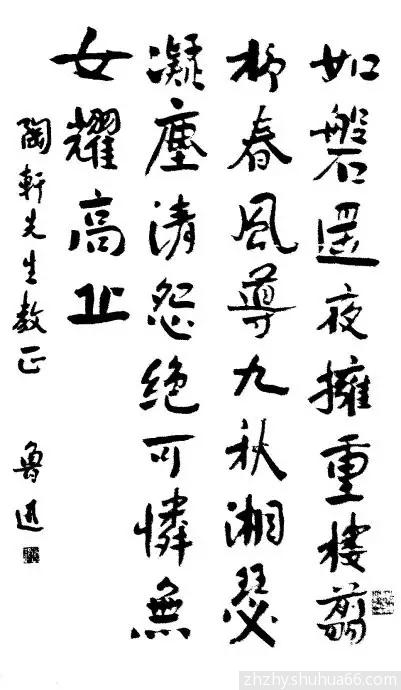 如磐遥夜擁重樓翦
柳春風導九秋湘瑟
凝塵清怨絕可憐無
女耀高丘
陶軒先生教正
魯迅
zhzhy.shuhua66.com